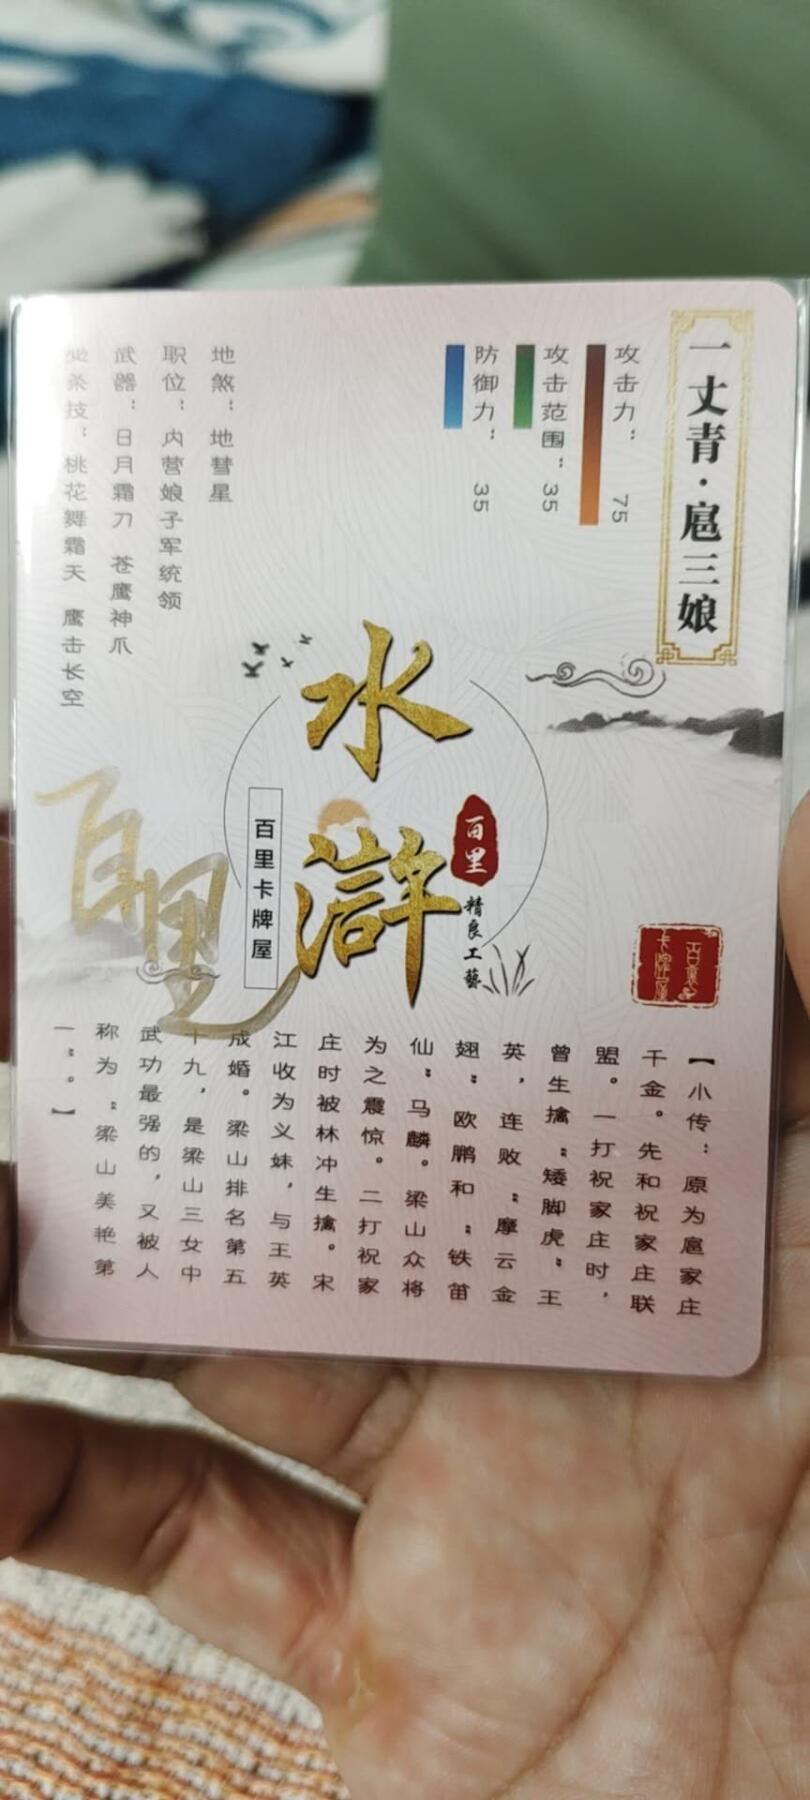 一丈青·扈三娘
攻击力： 75
攻击范围： 35
防御力： 35
地煞：地彗星
职位：内营娘子军统领
武器：日月霜刀 苍鹰神爪
必杀技：桃花舞霜天 鹰击长空
水
浒
百里
精良工艺
百里卡牌屋
百里
百里
卡牌屋
【小传：原为扈家庄
千金。先和祝家庄联
盟。一打祝家庄时，
曾生擒“矮脚虎”王
英，连败“摩云金
翅”欧鹏和“铁笛
仙”马麟。梁山众将
为之震惊。二打祝家
庄时被林冲生擒。宋
江收为义妹，与王英
成婚。梁山排名第五
十九，是梁山三女中
武功最强的，又被人
称为“梁山美艳第
一”。】